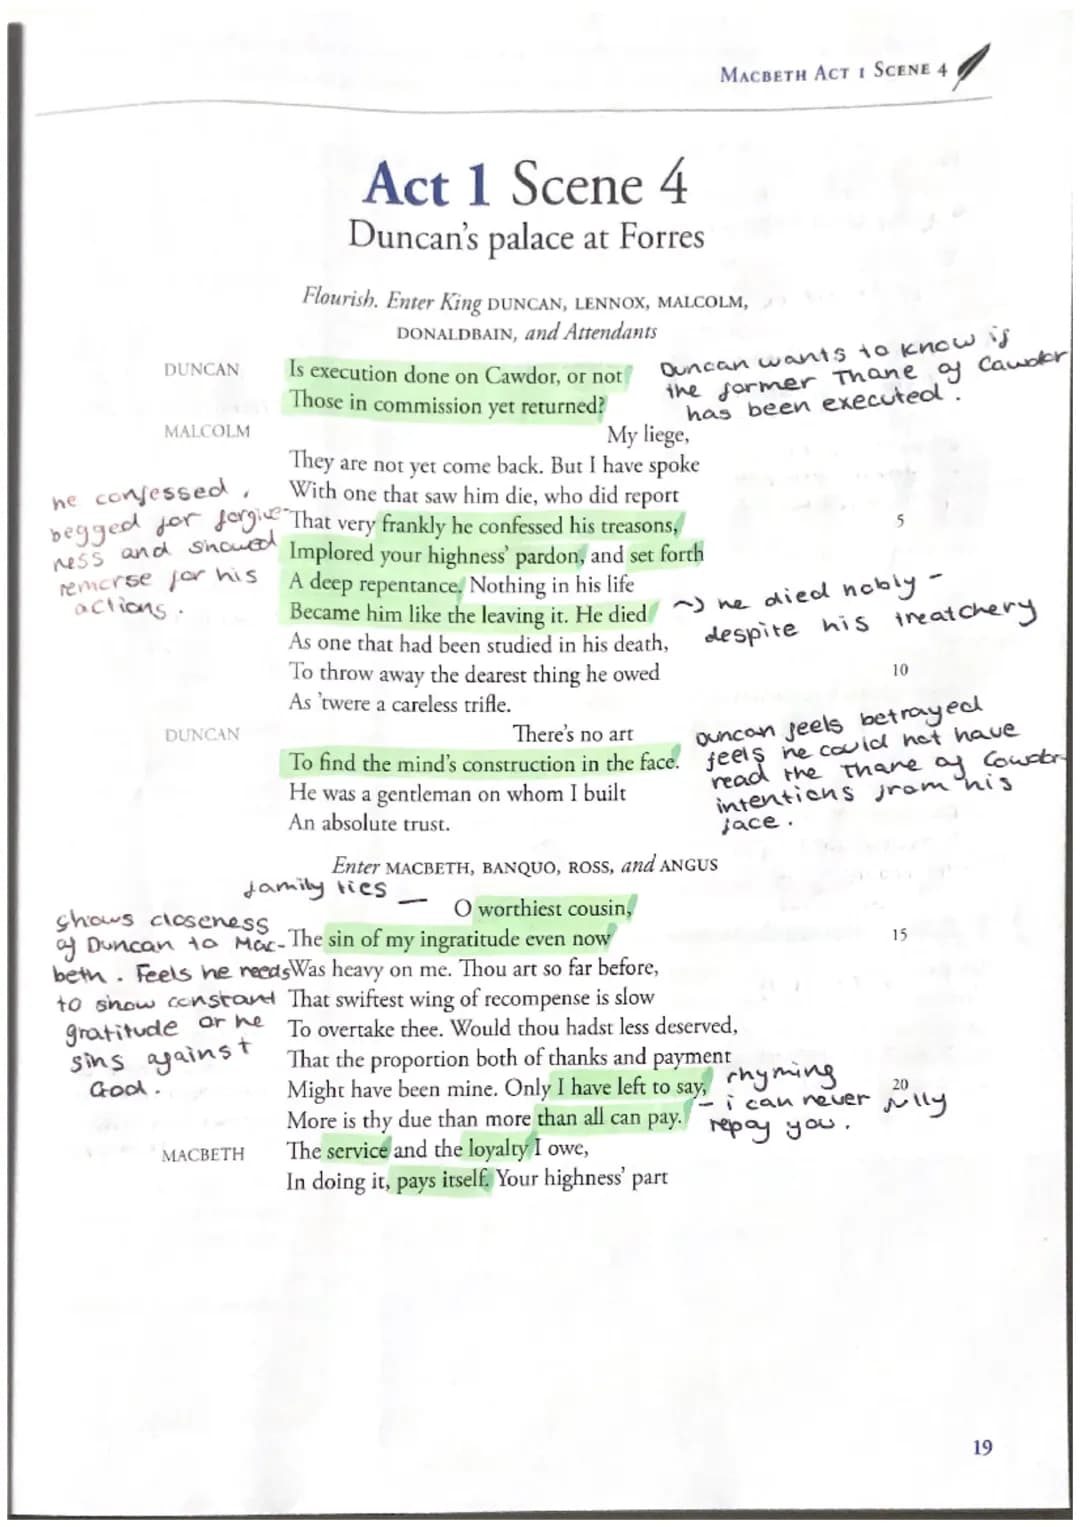 MACBETH ACT 1 SCENE 4
Act 1 Scene 4
Duncan's palace at Forres
Flourish. Enter King DUNCAN, LENNOX, MALCOLM,
DONALDBAIN, and Attendants
DUNCAN Is execution done on Cawdor, or not
Those in commission yet returned?
Duncan wants to know if
the former Thane of Cawdor
has been executed.
MALCOLM My liege,
They are not yet come back. But I have spoke
With one that saw him die, who did report
That very frankly he confessed his treasons, 5
Implored your highness' pardon, and set forth
A deep repentance. Nothing in his life
Became him like the leaving it. He died
As one that had been studied in his death,
To throw away the dearest thing he owed 10
As 'twere a careless trifle.
he confessed,
begged for forgive-
ness and showed
remorse for his
actions.
he died nobly -
despite his treatchery
DUNCAN There's no art
To find the mind's construction in the face.
He was a gentleman on whom I built
An absolute trust.
Duncan feels betrayed
feels he could not have
read the Thane of Cowdor
intentions from his
face.
Enter MACBETH, BANQUO, ROSS, and ANGUS
family ties —
O worthiest cousin,
The sin of my ingratitude even now 15
Was heavy on me. Thou art so far before,
That swiftest wing of recompense is slow
To overtake thee. Would thou hadst less deserved,
That the proportion both of thanks and payment
Might have been mine. Only I have left to say, 20
More is thy due than more than all can pay.
shows closeness
of Duncan to Mac-
beth. Feels he needs
to show constant
gratitude or he
sins against
God.
rhyming
- i can never fully
repay you.
MACBETH The service and the loyalty I owe,
In doing it, pays itself. Your highness' part
19